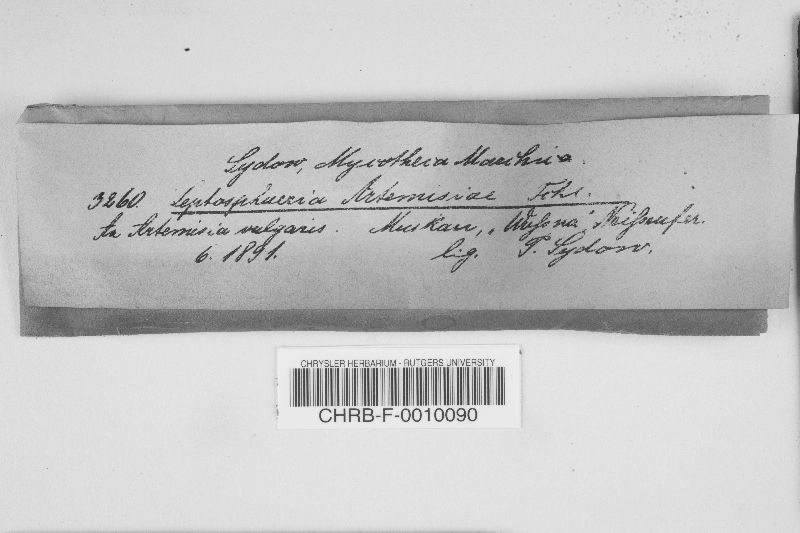 Sydow, Mycotheca Marchica.
3260. Leptosphaeria Artemisiae
An Artemisia vulgaris. Muskau,
6. 1891. lig. P. Sydow.
CHRYSLER HERBARIUM - RUTGERS UNIVERSITY
CHRB-F-0010090